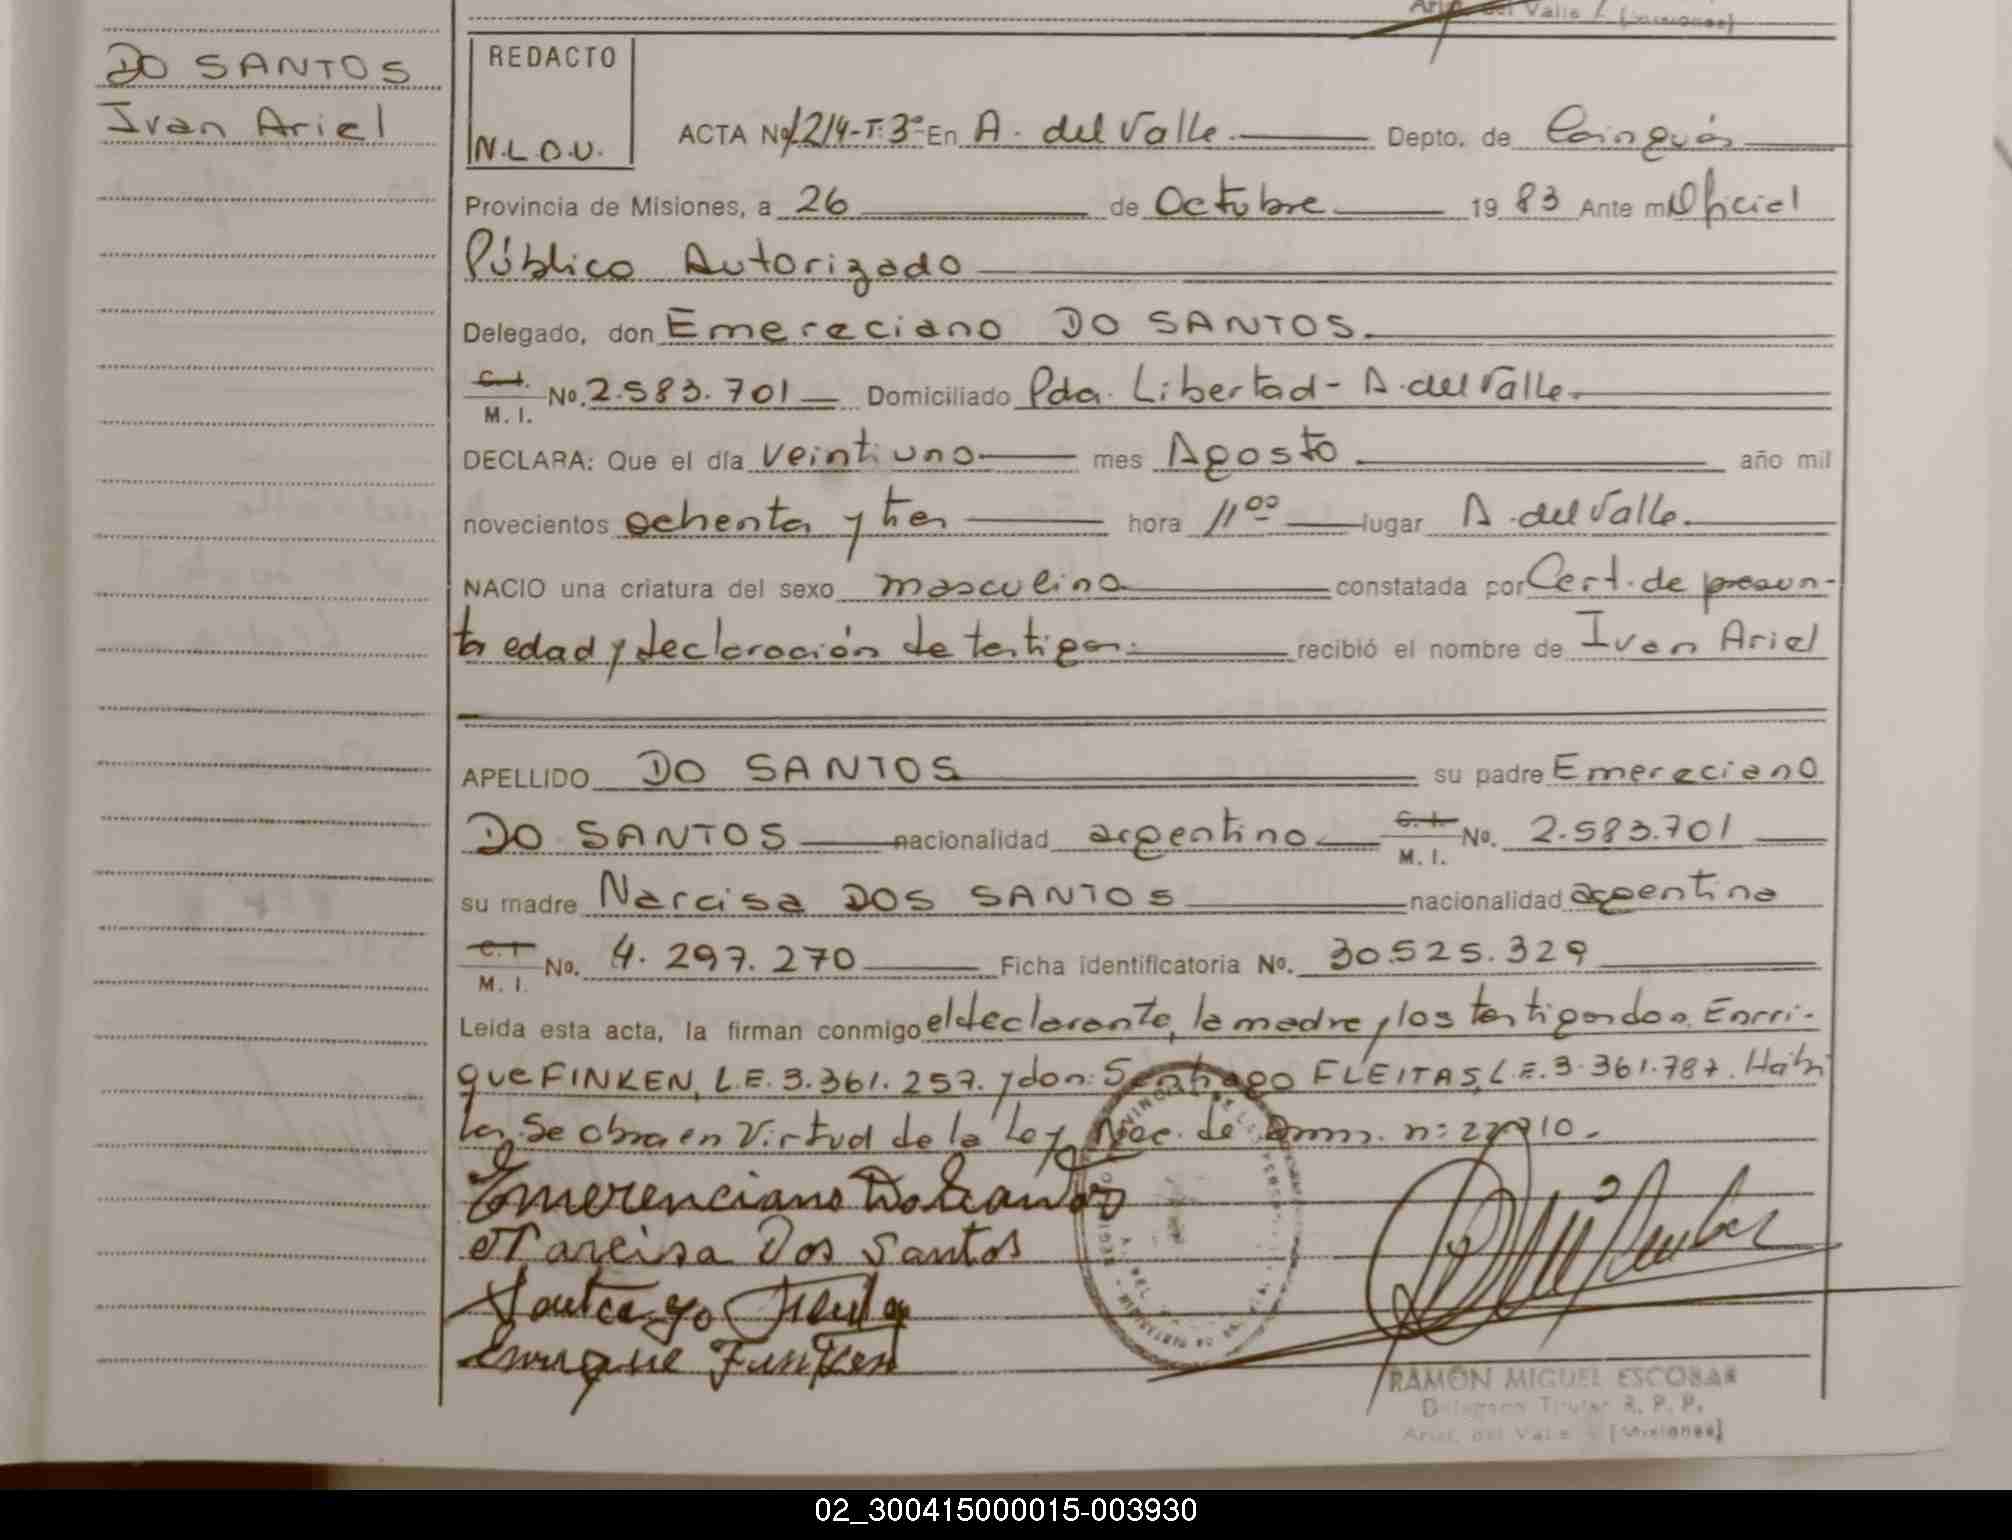 Arist. del Valle / (Misiones)
DO SANTOS
Ivan Ariel
REDACTO
N.L.D.U.
ACTA Nº 1214-T:3º- En A. del Valle. Depto. de Cainguás
Provincia de Misiones, a 26 de Octubre 19 83 Ante mi Oficial
Público Autorizado
Delegado, don Emereciano DO SANTOS.
C. I. / M. I. No. 2.583.701 Domiciliado Pda. Libertad - A. del Valle.
DECLARA: Que el día veintiuno mes Agosto año mil
novecientos ochenta y tres hora 11 00 lugar A. del Valle.
NACIO una criatura del sexo masculino constatada por Cert. de presun-
ta edad y declaración de testigos. recibió el nombre de Ivan Ariel
APELLIDO DO SANTOS su padre Emereciano
DO SANTOS nacionalidad argentino C. I. / M. I. No. 2.583.701
su madre Narcisa DOS SANTOS nacionalidad argentina
C. I / M. I. No. 4.297.270 Ficha identificatoria No. 30.525.329
Leída esta acta, la firman conmigo el declarante, la madre y los testigos don Enrri-
que FINKEN, L.E. 3.361.257. y don: Santiago FLEITAS, L.E. 3.361.787. Hábi
les. Se obra en Virtud de la Ley Nac. de Amn. n: 22710.
Emerenciano Do Santos
Narcisa Dos Santos
Santiago Fleita
Enrrique Finken
RAMÓN MIGUEL ESCOBAR
Delegado Titular R. P. P.
Arist. del Valle - (Misiones)
02_300415000015-003930